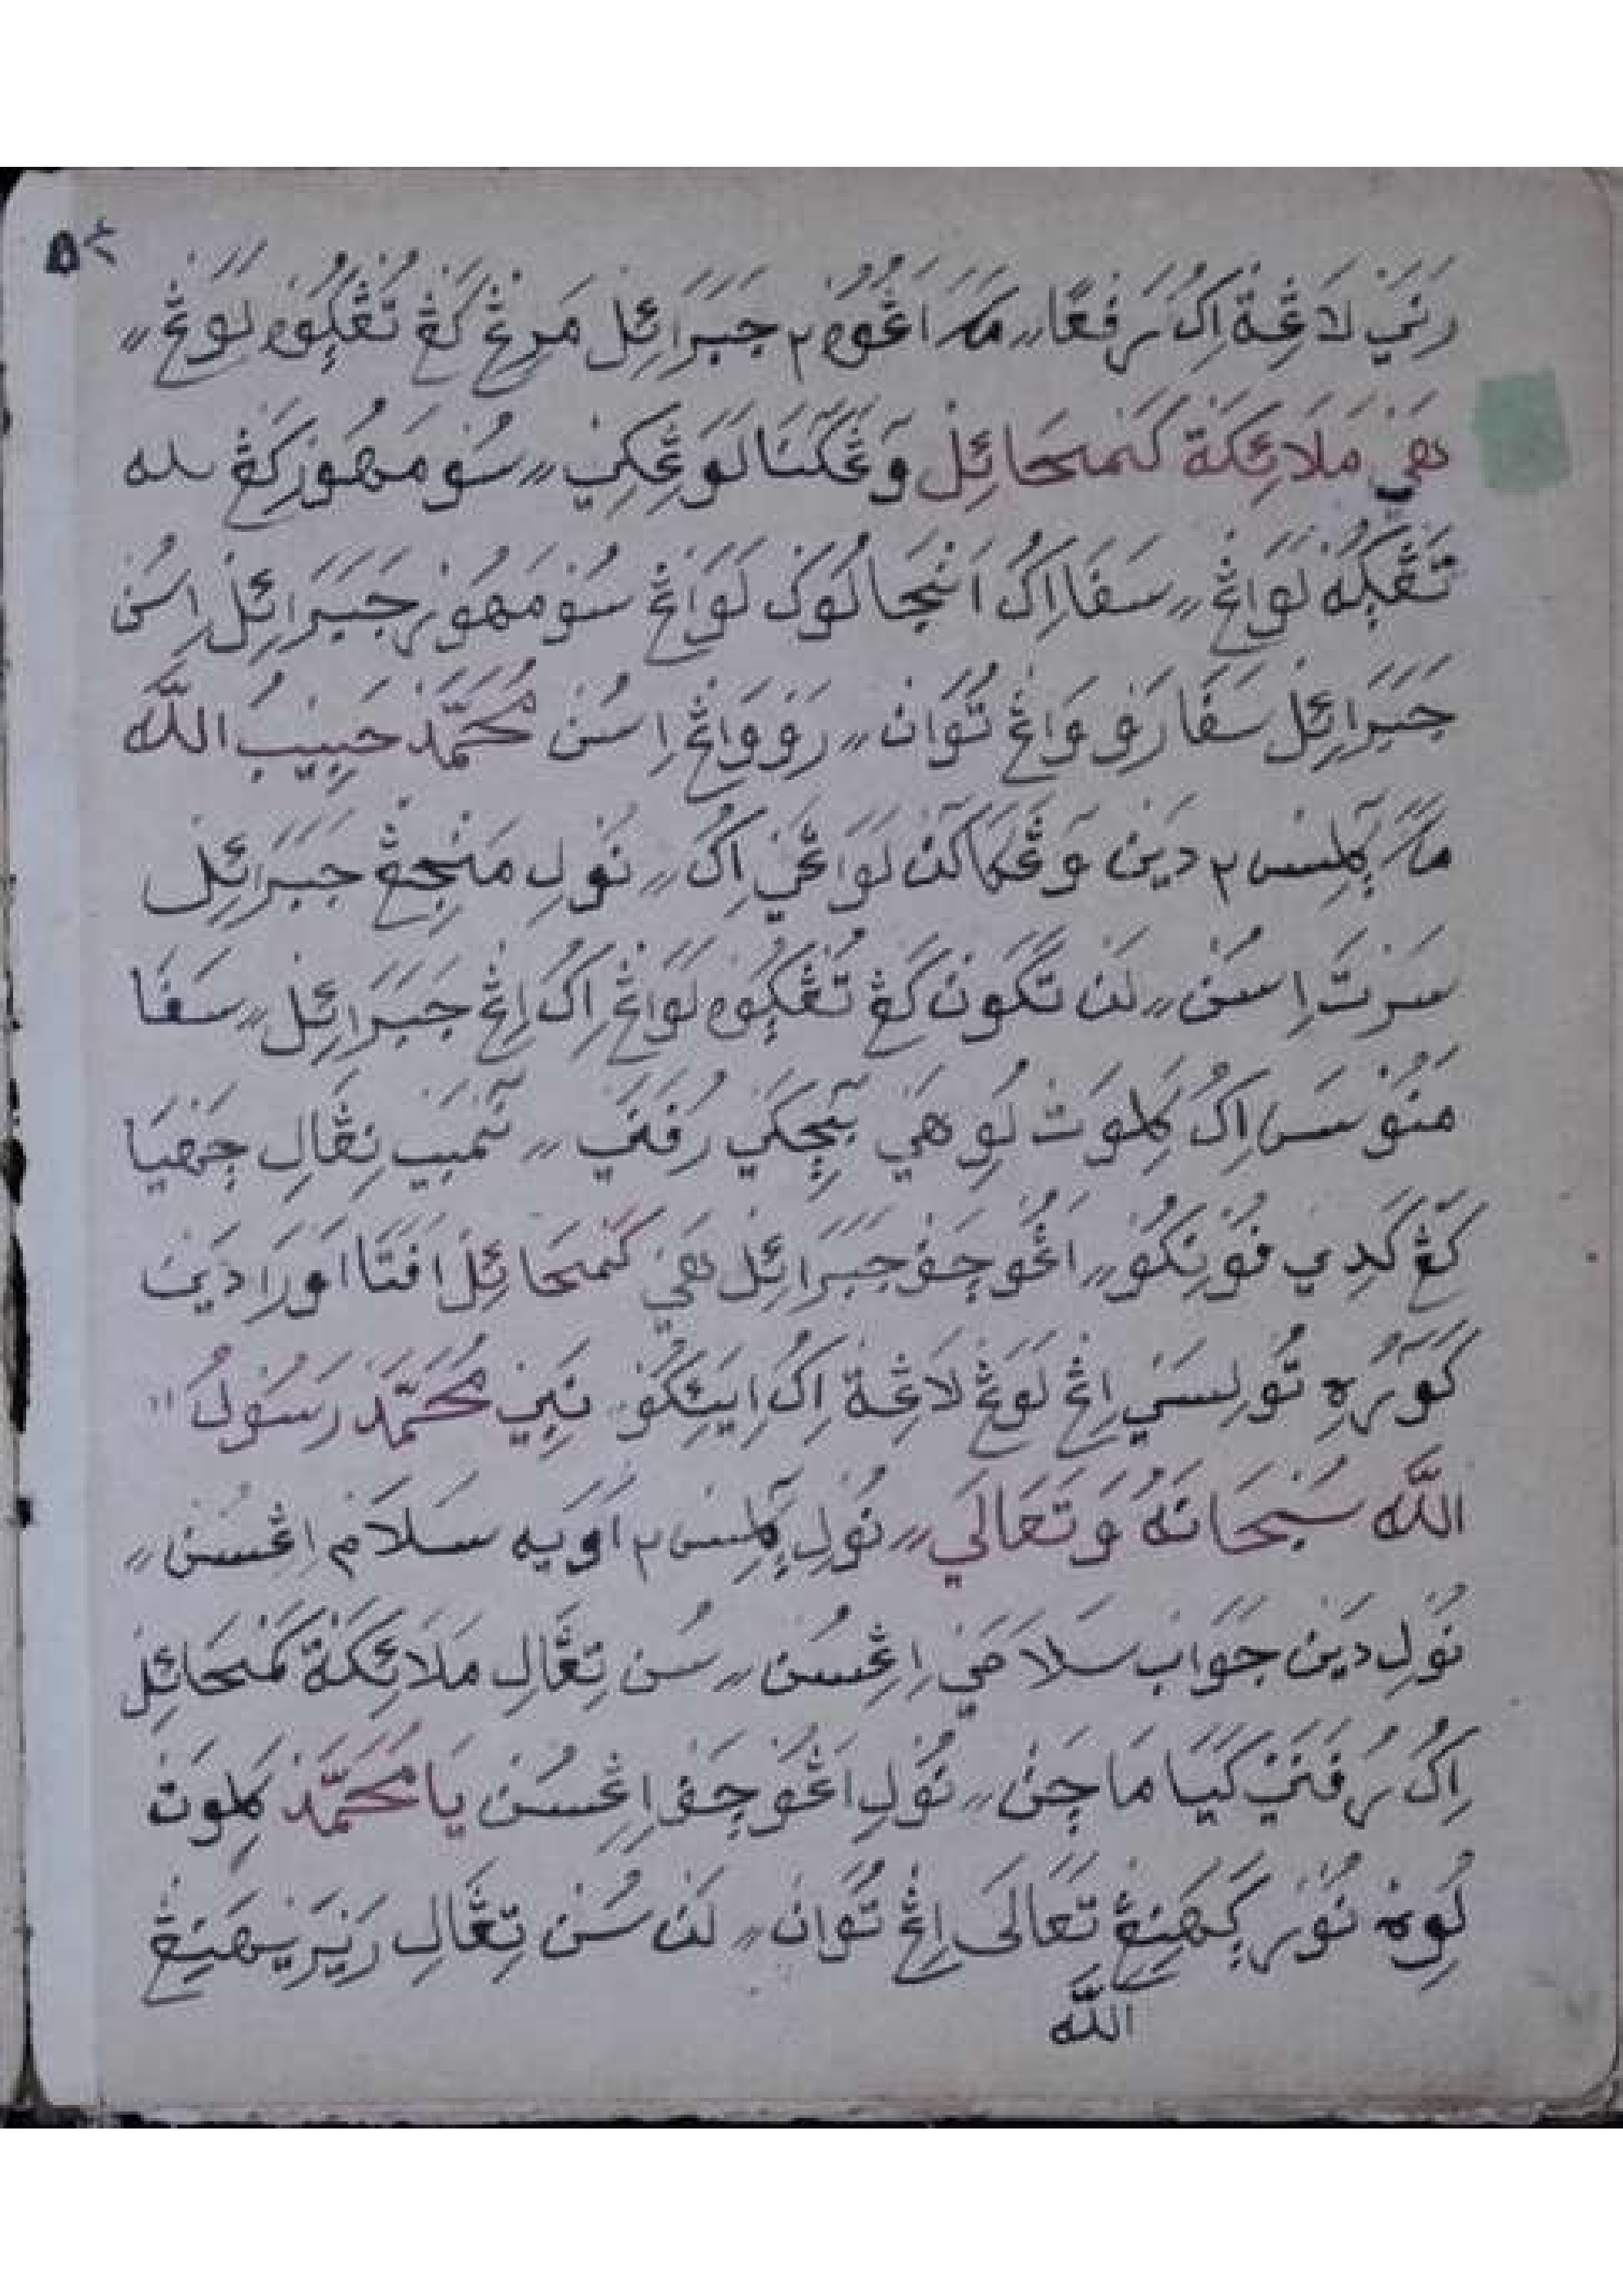 ٥٢
رَنَيْ لَاڠِة اِكُ رَفِعَا〃 مَكَ اَڠُوْهْ٢ جَبَرَائِلْ مَرِڠْ كَڠْ تُڠْكِوْ لَوَڠْ〃
هَيْ مَلَائِكَةْ كَنْمَحَائِلْ وَڠَكْنَا لَوَڠِكِيْ〃 سُوْمَهُوْرْ كَڠْ
تُڠْكُهْ لَوَاڠْ〃 سَفَا اِكُ اَنْجَالُوْكْ لَوَاڠْ سُوْمَهُوْرْ جَبَرَائِلْ اِسُنْ
جَبَرَائِلْ سَفَا رَوْوَاڠْ تُوَانْ〃 رَوْوَاڠْ اِسُنْ مُحَمَّدْ حَبِيْبُ اللّٰه
مَكَ كِلِسْ٢ دَيْنْ وَڠَكَاكَنْ لَوَاڠَيْ اِكُ〃 نُوْلِ مَنْجِڠْ جَبَرَائِلْ
سَرْتَ اِسُنْ〃 لَنْ تَكَوْنْ كَڠْ تُڠْكِوْهْ لَوَاڠْ اِكُ اِڠْ جَبَرَائِلْ〃 سَفَا
مَنُوْسَ اِكُ كِلِوَتْ لُوِهَيْ بَجِكَيْ رُفَنَيْ〃 نَمْبَيْ نِڠَالِ جَهْيَا
كَڠْ كَدِيْ فُوْنِكُوْ〃 اَڠُوْجَفْ جَبَرَائِلْ هَيْ كَنْمَحَائِلْ اَفَتَا اَوْرَا دَيْنْ
كَوْرُهِ تُوْلِسَيْ اِڠْ لَوَڠْ لَاڠِةْ اِكُ اِيَيْكُوْ نَبِيْ مُحَمَّدْ رَسُوْلُ〃
اللّٰه سُبْحَانَهُ وَتَعَالَي〃 نُوْلِ كِلِسْ٢ اَوَيْهْ سَلَامْ اِڠْسُنْ〃
نُوْلِ دَيْنْ جَوَابْ سَلَامَيْ اِڠْسُنْ〃 سُنْ تِڠَالِ مَلَائِكَةْ كَنْمَحَائِلْ
اِكُ رُفَنَيْ كَيَا مَاجَنْ〃 نُوْلِ اَڠُوْجَفْ اِڠْسُنْ يَا مُحَمَّدْ كِلِوَتْ
لُوِهْ نُوْرْ كَهَنِڠْ تَعَالَى اِڠْ تُوَانْ〃 لَنْ سُنْ تِڠَالِ
اللّٰه